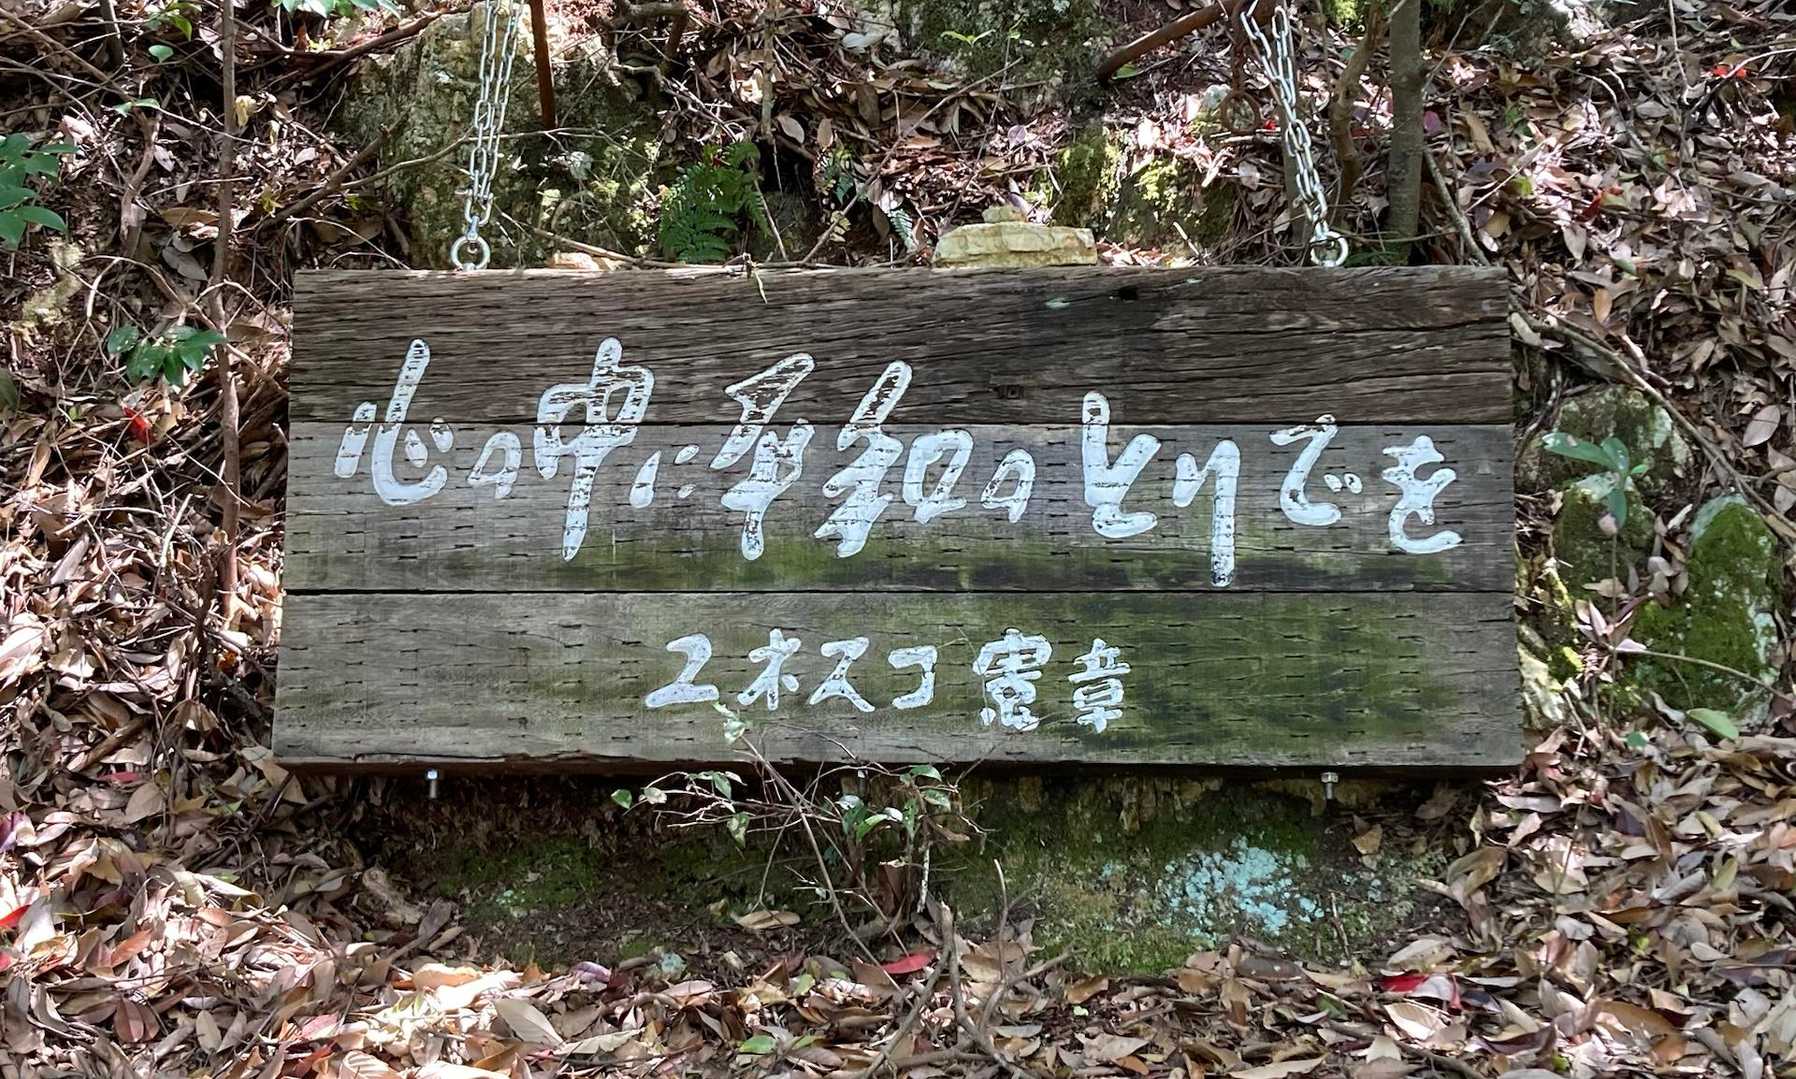 心の中に平和のとりでを
ユネスコ憲章